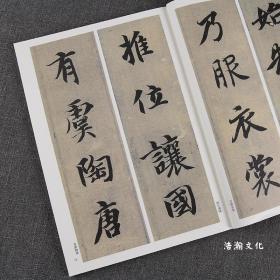 始制
乃服衣裳
推位讓國
有虞陶唐
浩瀚文化